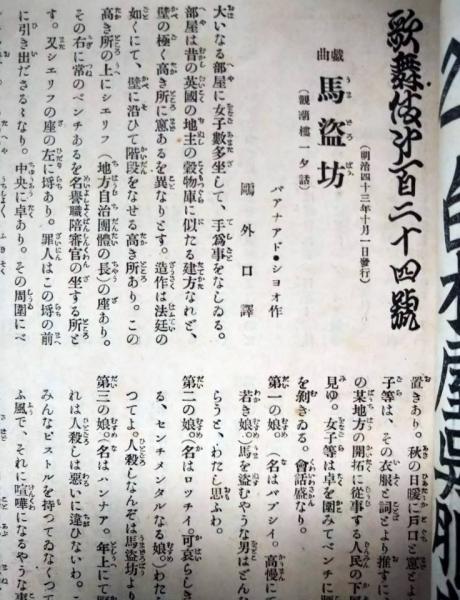 歌舞伎第百二十四號
(明治四十三年十月一日發行)
戲曲 馬盜坊
(觀潮樓一夕話)
バアナアド・シヨオ作
鷗外口譯
大いなる部屋に女子數多坐して、手爲事をなしゐる。
部屋は昔の英國の地主の穀物庫に似たる建方なれど、
壁の極く高き所に窓あるを異なりとす。造作は法廷の
如くにて、壁に沿ひて階段をなせる高き所あり。この
高き所の上にシエリフ(地方自治團體の長)の座あり。
その右に常のベンチあるを名譽職陪審官の坐する所と
す。又シエリフの座の左に埒あり。罪人はこの埒の前
に引き出ださるゝなり。中央に卓あり。その周圍にベ
置きあり。秋の日暖に戸口と窓とよ
子等は、その衣服と詞とより推すに、
の某地方の開拓に從事する人民の下層
見ゆ。女子等は卓を圍みてベンチに
を剝きゐる。會話盛なり。
第一の娘。(名はバブシイ。高慢に
若き娘。)馬を盜むやうな男はどん
らうと、わたし思ふわ。
第二の娘。(名はロツチイ。可哀らしき
る、センチメンタルなる娘。)わた
つてよ。人殺しなんぞは馬盜坊より
第三の娘。(名はハンナア。年上にて
れは人殺しは惡いに違ひないわ。こ
みんなピストルを持つてゐなくつて
ふ風で、それに喧嘩になるやうな事